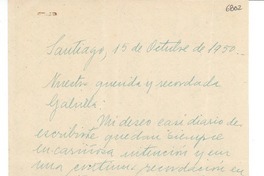 6802
Santiago, 15 de Octubre de 1950._
Nuestra querida y recordada
Gabriela:
Mi deseo casi diario de
escribirte quedan siempre
en cariñosa intención y en
una continua recordación en